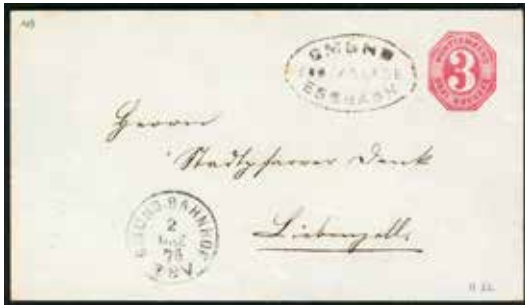 GMÜND
ESSBACH
WÜRTTEMBERG
3
DREI KREUZER
Herrn
Stadtpfarrer Denk
Liebenzell.
GMÜND BAHNHOF
2
75